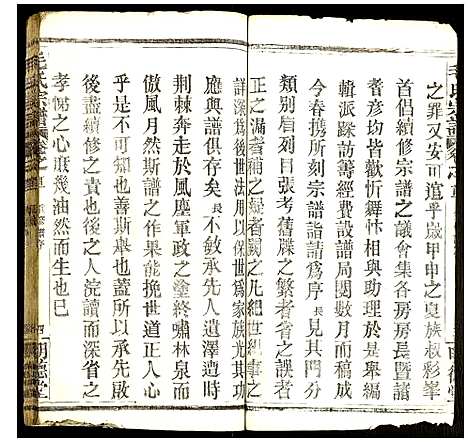 之罪又安可逭乎歲甲申之夏族叔彩峯
首倡續修宗譜之議會集各房房長暨諸
耆彥均相歡忻舞怵相與助理於是舉編
輯派踩訪籌經費設譜局閱數月而稿成
今春攜所刻宗譜詣請為序長見其門分
類晰條列目張考舊牒之繁者省之誤者
正之漏者補之疑者闕之凡紀世紀事之
詳深為後世法用以保世為家族光其功
應與譜俱存矣長不敏承先人遺澤遭時
荆棘奔走於風塵軍政之塗終嘯林泉而
傲風月然斯譜之作果能挽世道正人心
乎是不可知也善斯舉也蓋所以承先啟
後盡續修之責也後之人浣讀而深省之
孝弟之心庶幾油然而生也已
毛氏宗譜
明德堂